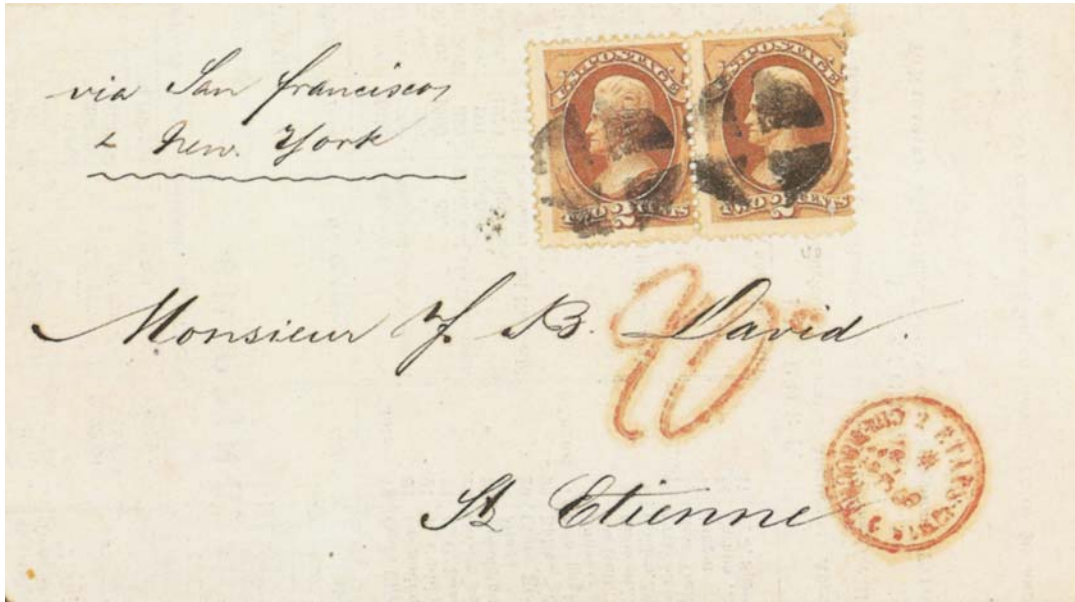 via San francisco
& New. York
U.S. POSTAGE
TWO 2 CENTS
U.S. POSTAGE
TWO 2 CENTS
Monsieur J. B. David.
90
St Etienne
2 ETATS-UNIS
CHERBOURG